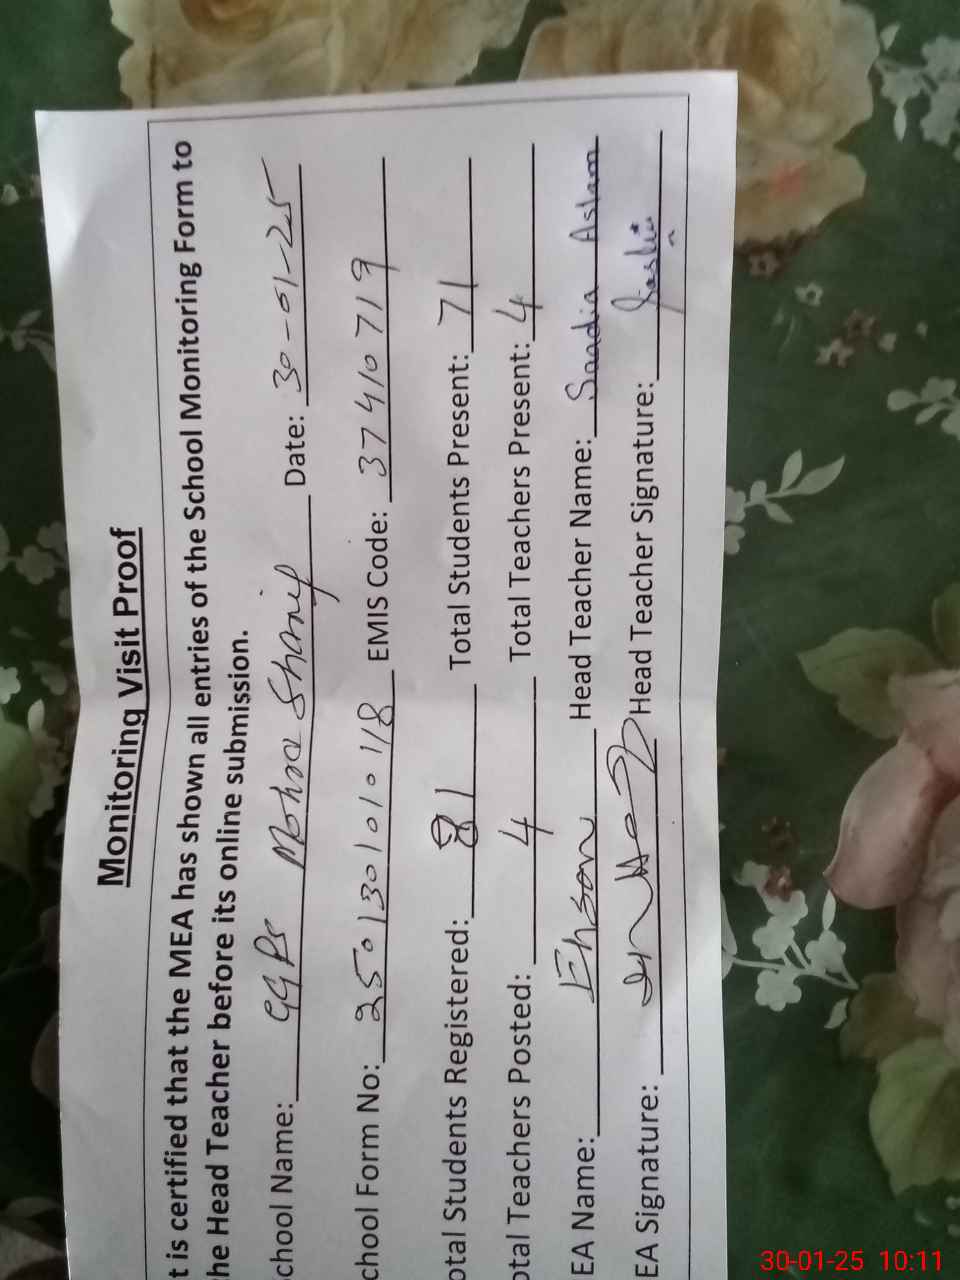 Monitoring Visit Proof
t is certified that the MEA has shown all entries of the School Monitoring Form to
he Head Teacher before its online submission.
chool Name: GGPS Mohra Sharif Date: 30-01-25
chool Form No: 2501301010118 EMIS Code: 37410719
otal Students Registered: 81 Total Students Present: 71
otal Teachers Posted: 4 Total Teachers Present: 4
EA Name: Ehson Head Teacher Name: Saadia Aslam
EA Signature: Head Teacher Signature:
30-01-25 10:11